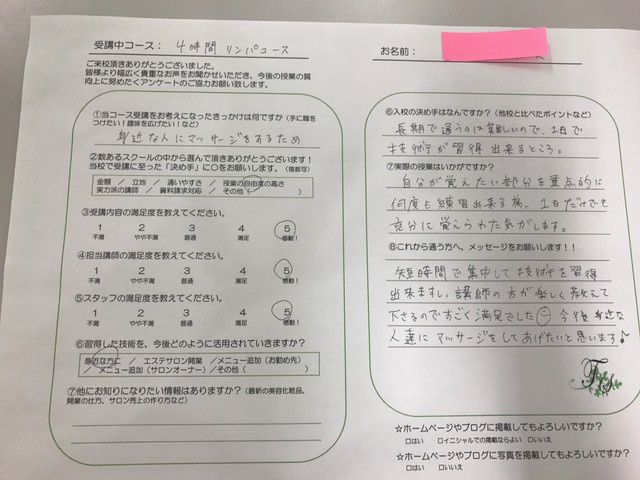 受講中コース： 4時間 リンパコース
お名前：
ご来校頂きありがとうございました。
皆様より幅広く貴重なお声をお聞かせいただき、今後の授業の質
向上に努めたくアンケートのご協力お願い致します。
①当コース受講をお考えになったきっかけは何ですか（手に職を
つけたい！趣味を広げたい！など）
身近な人にマッサージをするため
②数あるスクールの中から選んで頂きありがとうございます！
当校で受講に至った「決め手」に○をお願いします。（複数可）
金額 ／ 立地 ／ 通いやすさ ／ 授業の自由度の高さ
実力派の講師 ／ 資料請求対応 ／ その他（ ）
③受講内容の満足度を教えてください。
1 2 3 4 5
不満 やや不満 普通 満足 感動！
④担当講師の満足度を教えてください。
1 2 3 4 5
不満 やや不満 普通 満足 感動！
⑤スタッフの満足度を教えてください。
1 2 3 4 5
不満 やや不満 普通 満足 感動！
⑥習得した技術を、今後どのように活用されていきますか？
身近な方に ／ エステサロン開業 ／メニュー追加（お勤め先）
／ メニュー追加（サロンオーナー）／その他（ ）
⑦他にお知りになりたい情報はありますか？（最新の美容化粧品、
開業の仕方、サロン売上の作り方など）
⑥入校の決め手はなんですか？（他校と比べたポイントなど）
長期で通うのは難しいので、1日で
技術が習得 出来るところ。
⑦実際の授業はいかがですか？
自分が覚えたい部分を重点的に
何度も練習出来る為、1日だけでも
充分に覚えられた気がします。
⑧これから通う方へ、メッセージをお願いします！！
短時間で集中して技術を習得
出来ますし、講師の方が楽しく教えて
下さるのですごく満足でした 今後身近な
人達にマッサージをしてあげたいと思います♪
☆ホームページやブログに掲載してもよろしいですか？
□はい □イニシャルでの掲載ならよい □いいえ
☆ホームページやブログに写真を掲載してもよろしいですか？
□はい □いいえ